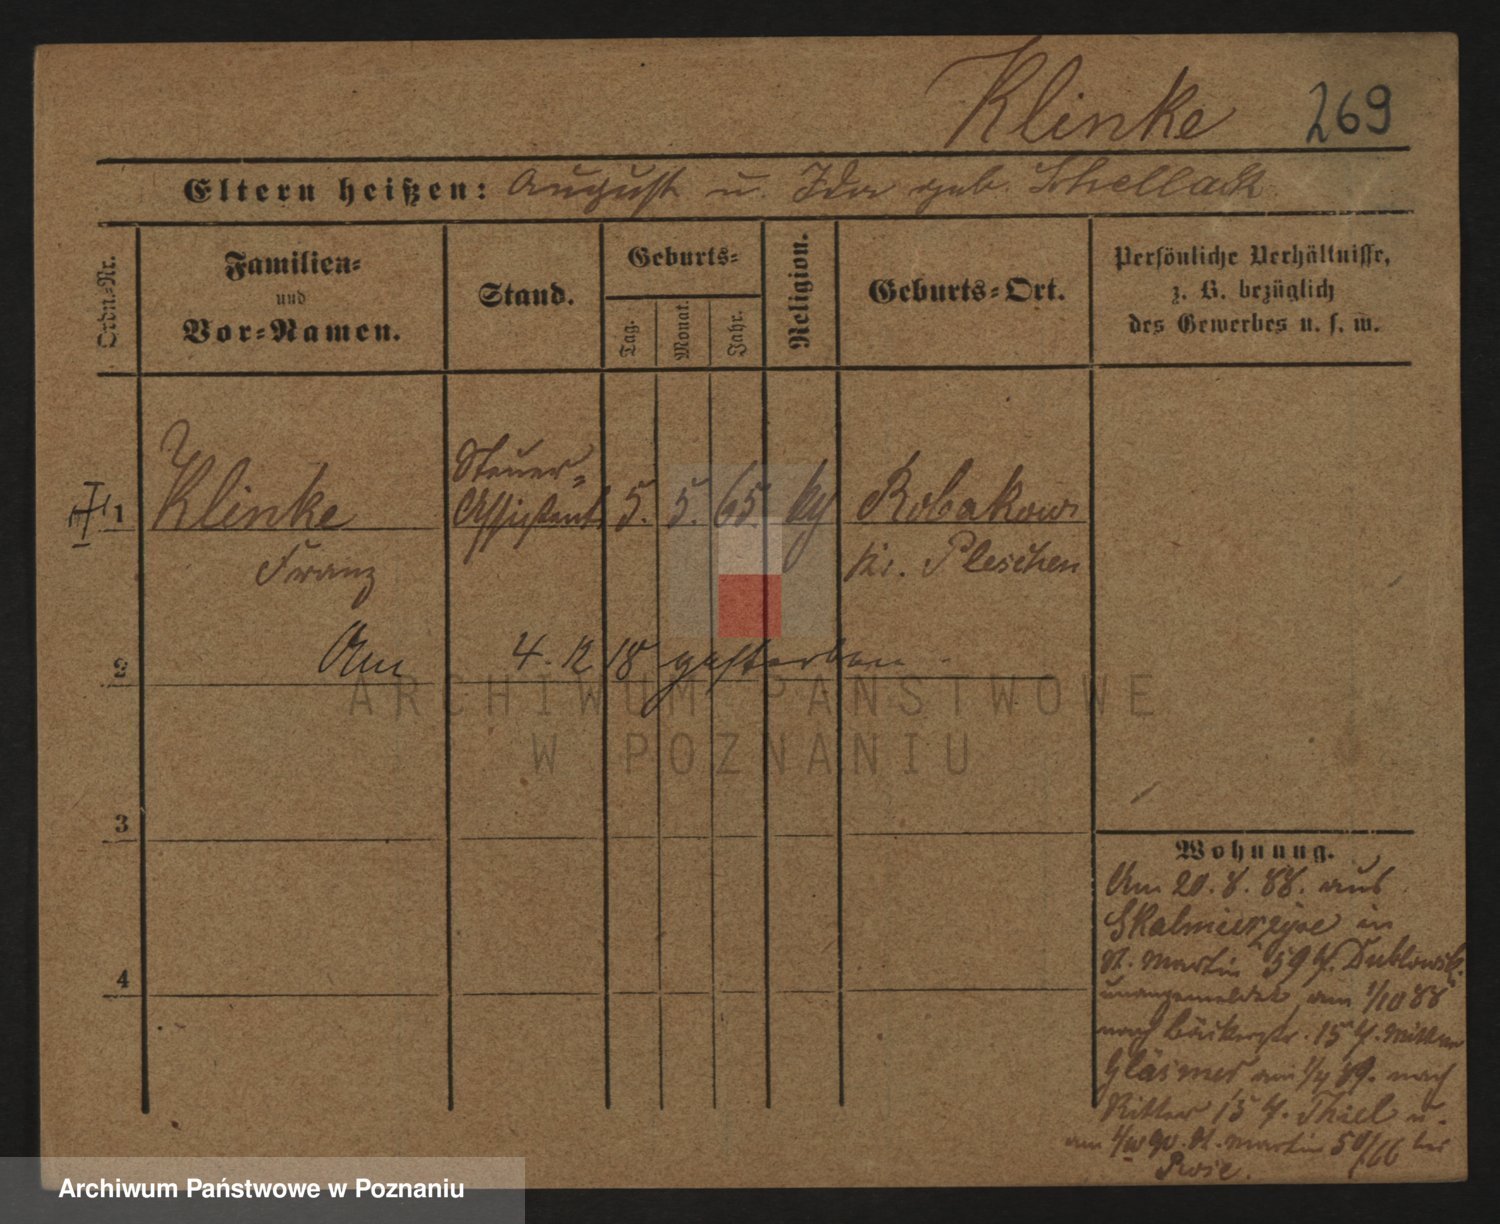 Klinke 269
Eltern heißen: August u. Ida geb. Schellack
Ordn.-Nr.
Familien-
und
Vor-Namen.
Stand.
Geburts-
Tag.
Monat.
Jahr.
Religion.
Geburts-Ort.
Persönliche Verhältnisse,
z. B. bezüglich
des Gewerbes u. s. w.
1 Klinke
Franz
Steuer-
Assistent
5. 5. 65.
Robakow
Kr. Pleschen
2 Am 4. 12 18 gestorben
3
4
Wohnung.
Am 20. 8. 88. aus
Skalmierzyce in
St. Martin 59 b. Dublowsk.
unangemeldet, am 1/10 88
nach Bäckerstr. 15 b.
Gläsmer am 89. nach
Ritter 15 b. Thiel u.
am St. Martin 50/66 bei
Rose.
ARCHIWUM PAŃSTWOWE
W POZNANIU
Archiwum Państwowe w Poznaniu